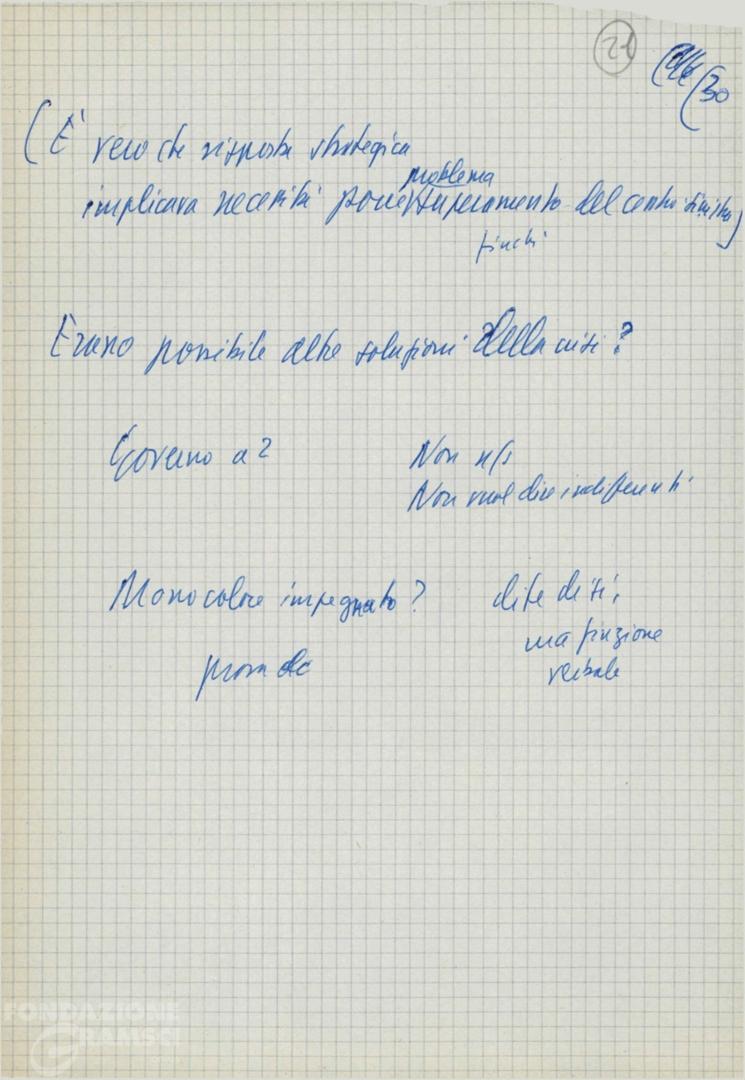 21
30
(È vero che risposta strategica
problema
implicava necessità porre superamento del centro sinistra)
finchi
Erano possibile altre soluzioni della crisi?
Governo a 2
Non n/s
Non vuol dire indifferenti
Monocolore impegnato?
dite di sì,
ma finzione
verbale
prova dc
FONDAZIONE
GRAMSCI